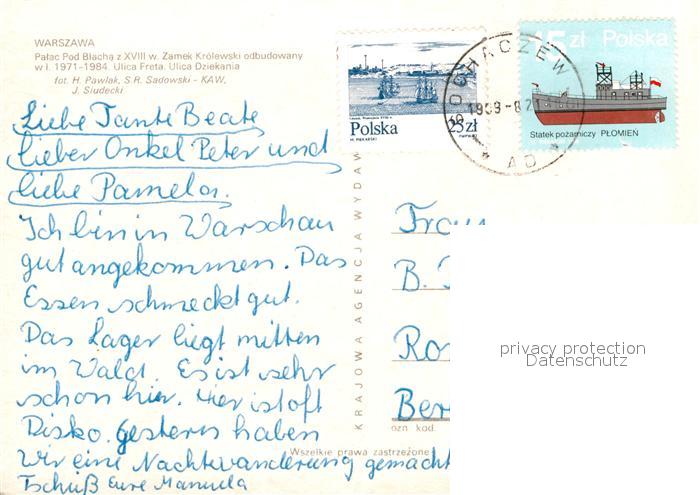 WARSZAWA
Pałac Pod Blachą z XVIII w. Zamek Królewski odbudowany
w l. 1971-1984. Ulica Freta. Ulica Dziekania
fot. H. Pawlak, S.R. Sadowski - KAW,
J. Siudecki
Liebe Tante Beate
lieber Onkel Peter und
liebe Pamela.
Ich bin in Warschau
gut angekommen. Das
Essen schmeckt gut.
Das Lager liegt mitten
im Wald. Es ist sehr
schön hier. Hier ist oft
Disko. Gestern haben
wir eine Nachtwanderung gemacht
Tschüß Eure Manuela
Polska 25 zł
SOCHACZEW
AD
15 zł Polska
Statek pożarniczy PŁOMIEŃ
KRAJOWA AGENCJA WYDAW
Frau
B.
Ro
Ber
ozn kod
Wszelkie prawa zastrzeżone
privacy protection
Datenschutz